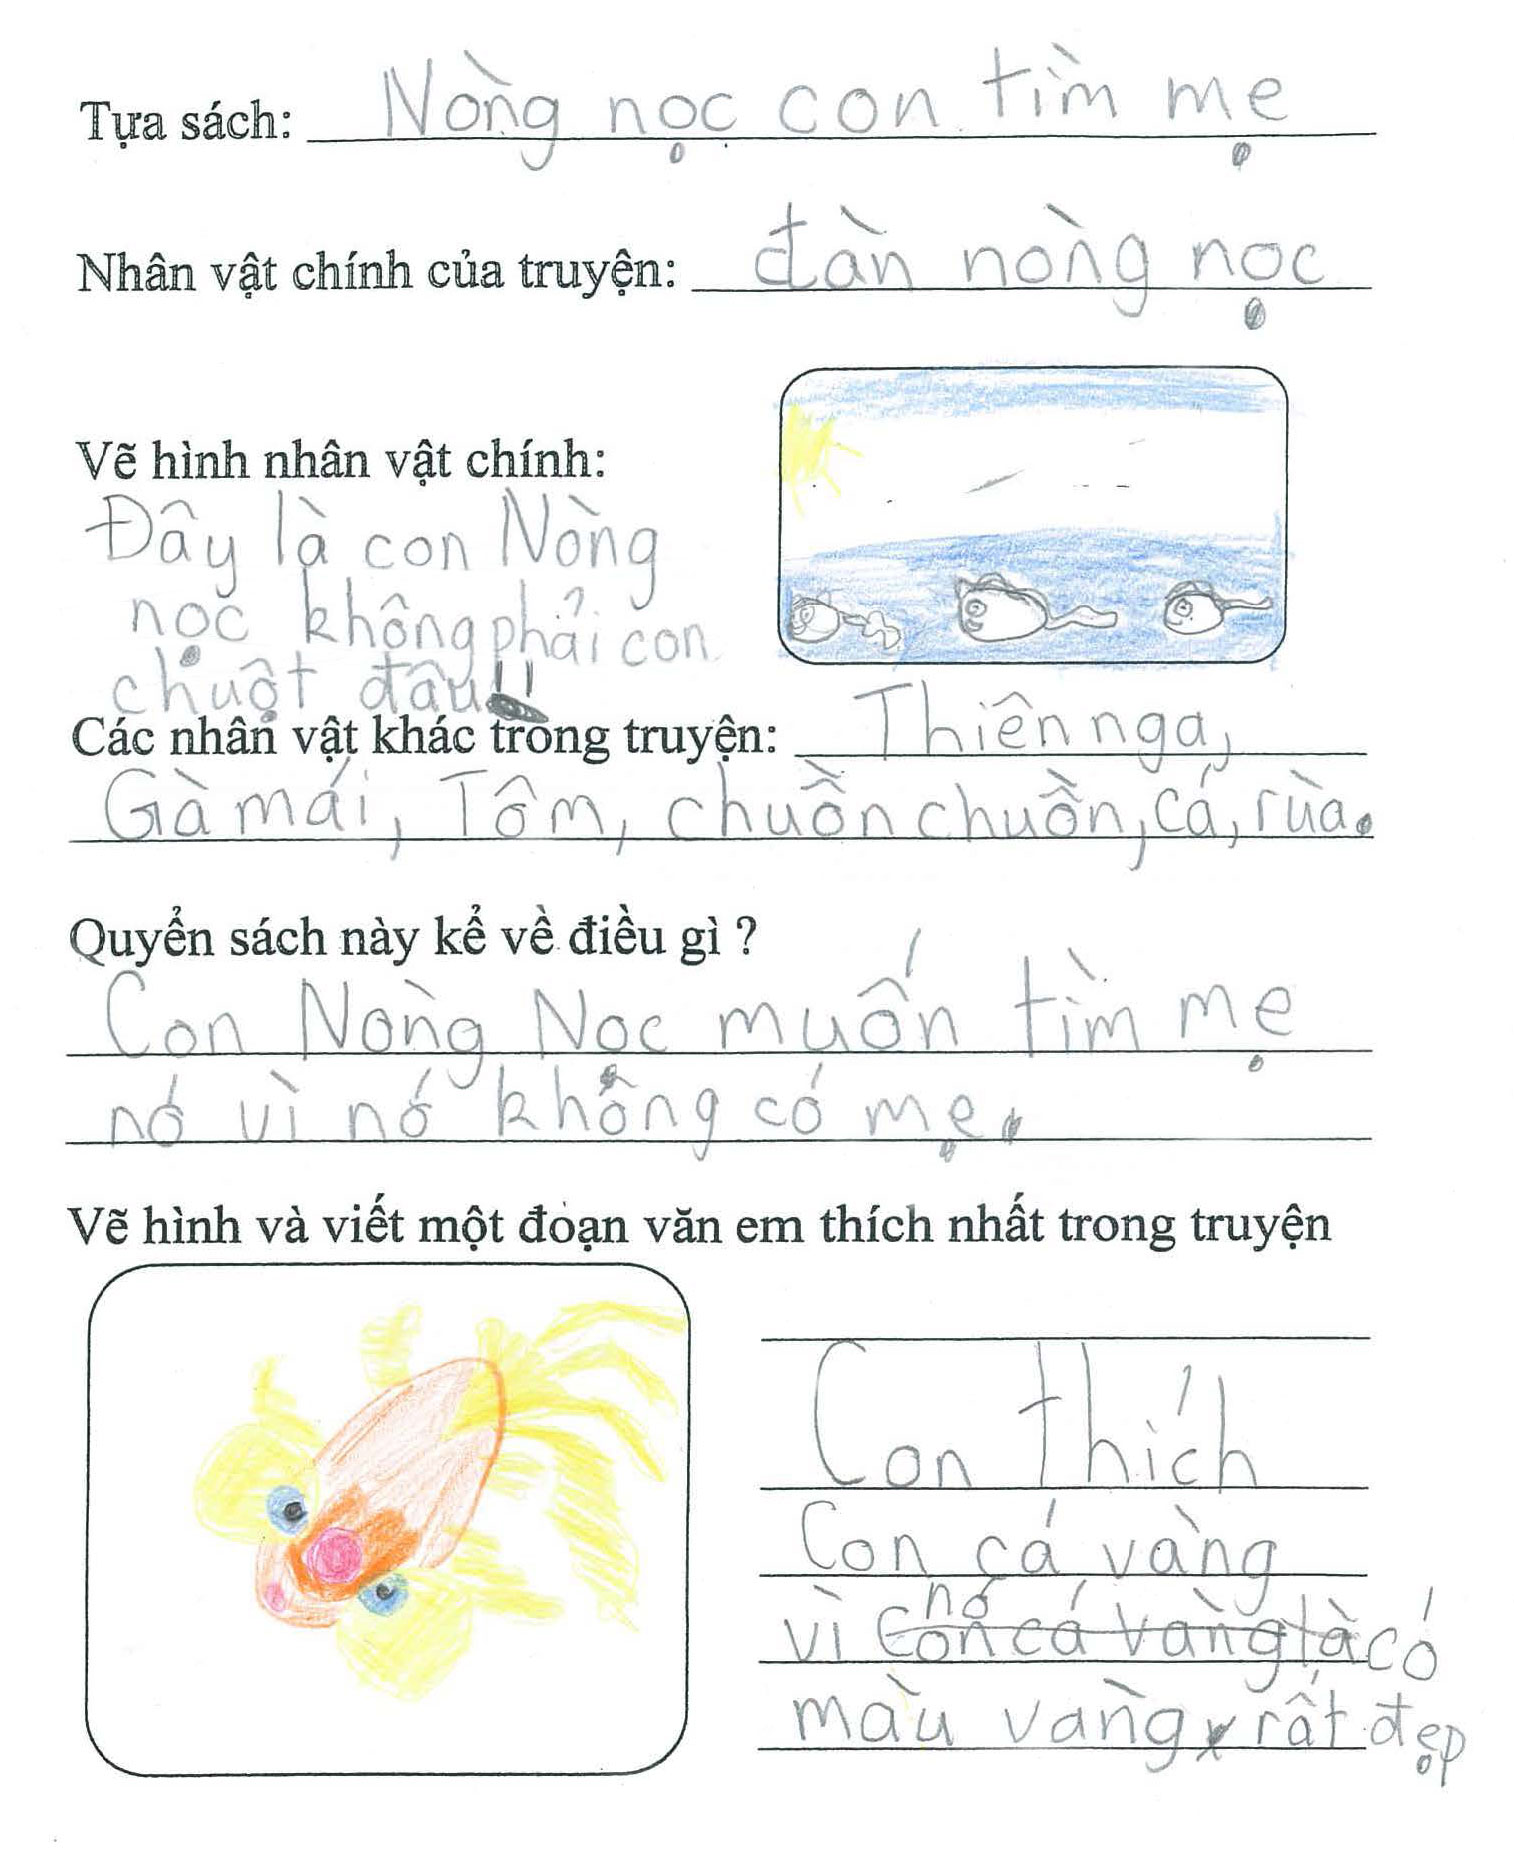 Tựa sách: Nòng nọc con tìm mẹ
Nhân vật chính của truyện: đàn nòng nọc
Vẽ hình nhân vật chính:
Đây là con Nòng
nọc không phải con
chuột đâu!!
Các nhân vật khác trong truyện: Thiên nga,
Gà mái, Tôm, chuồn chuồn, cá, rùa.
Quyển sách này kể về điều gì ?
Con Nòng Nọc muốn tìm mẹ
nó vì nó không có mẹ.
Vẽ hình và viết một đoạn văn em thích nhất trong truyện
Con thích
Con cá vàng
nó
vì con cá vàng là có
màu vàng rất đẹp